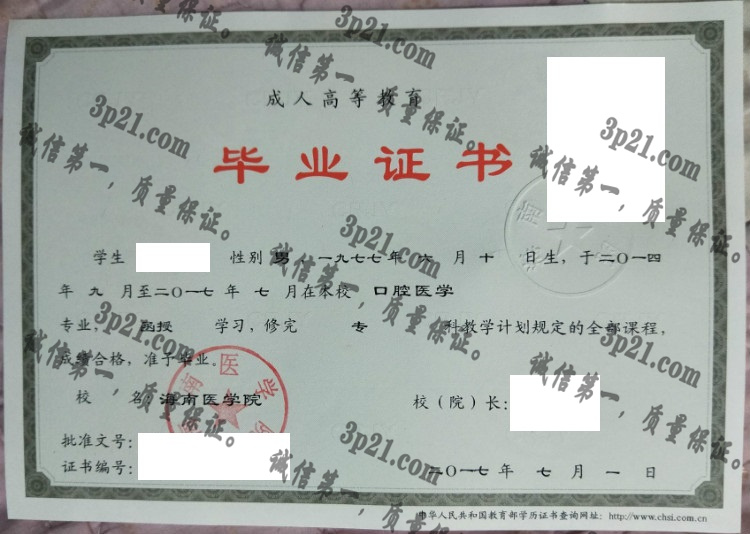 成人高等教育
毕业证书
学生 性别 男,一九七七年 六 月 十 日生,于二〇一四
年 九 月至二〇一七 年 七 月在本校 口腔医学
专业, 函授 学习,修完 专 科教学计划规定的全部课程,
成绩合格,准予毕业。
校 名:海南医学院
校(院)长:
批准文号:
证书编号:
二〇一七年 七 月 一 日
中华人民共和国教育部学历证书查询网址:http://www.chsi.com.cn
3p21.com
诚信第一,质量保证。
3p21.com
诚信第一,质量保证。
3p21.com
诚信第一,质量保证。
3p21.com
诚信第一,质量保证。
3p21.com
诚信第一,质量保证。
3p21.com
诚信第一,质量保证。
3p21.com
诚信第一,质量保证。
3p21.com
诚信第一,质量保证。